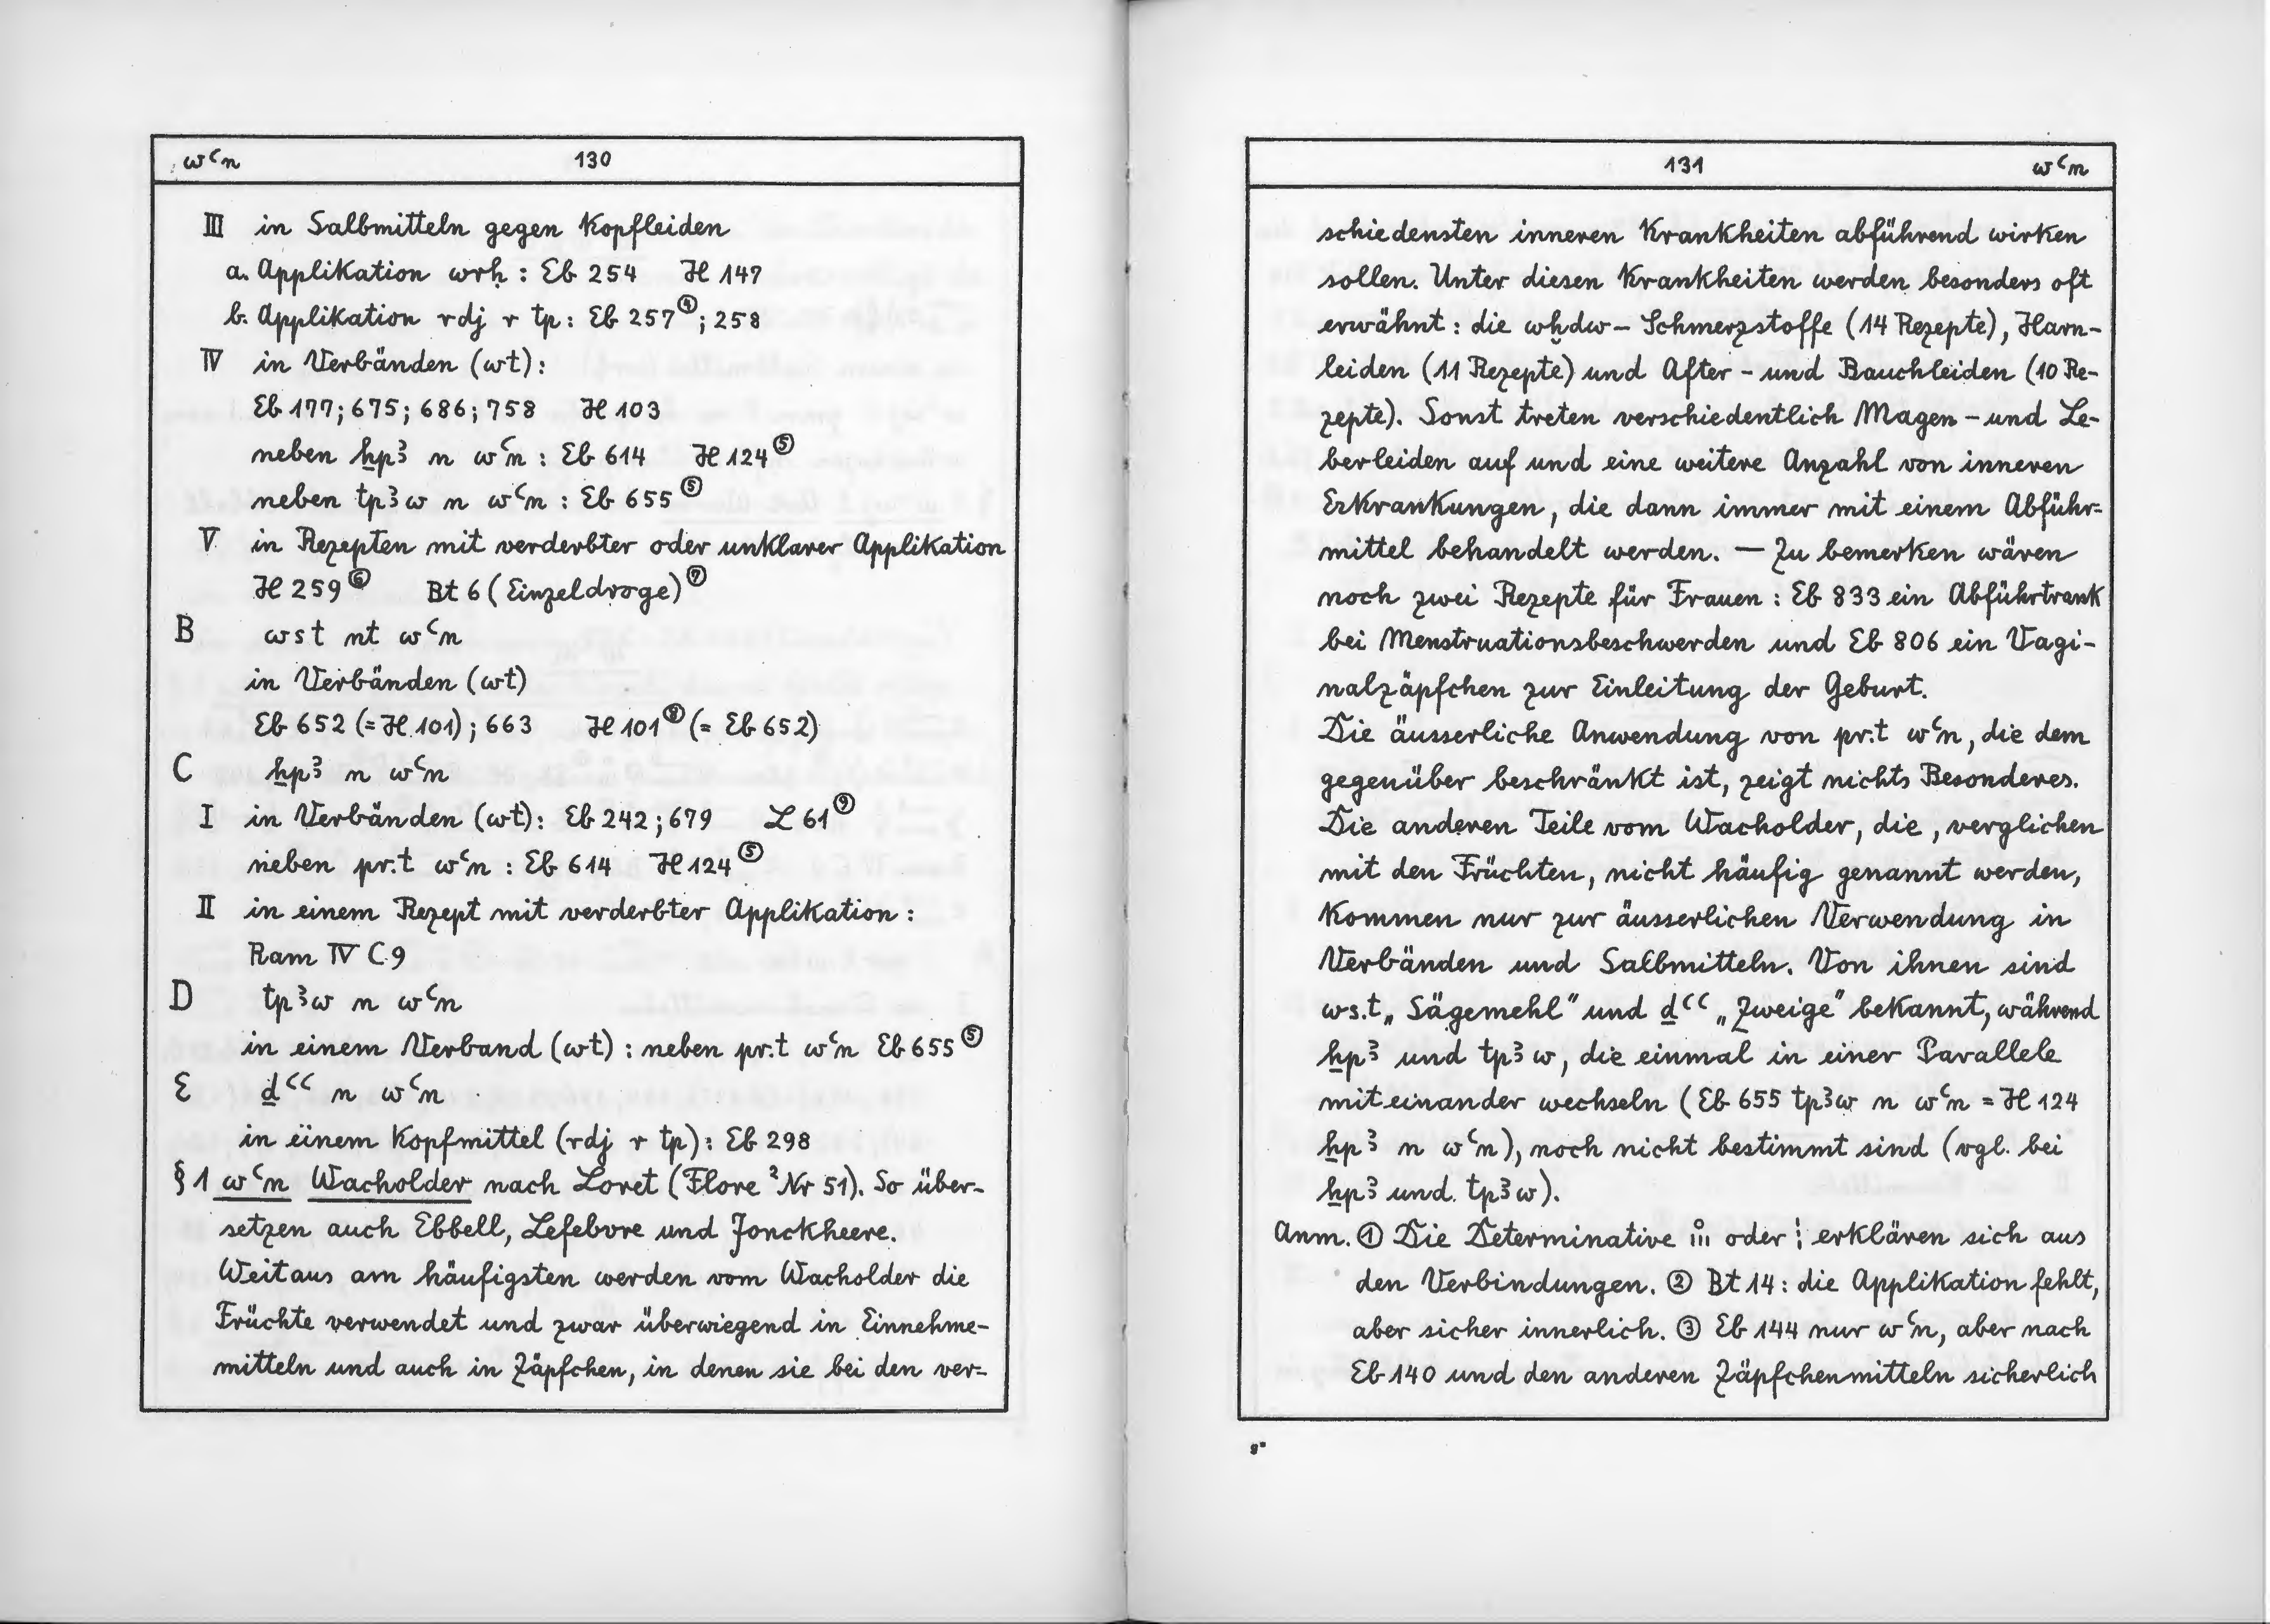 wꜥn 130
III in Salbmitteln gegen Kopfleiden
a. Applikation wrḥ : Eb 254 H 147
b. Applikation rdj r tp : Eb 257④; 258
IV in Verbänden (wt) :
Eb 177; 675; 686; 758 H 103
neben ẖpꜣ n wꜥn : Eb 614 H 124⑤
neben tpꜣw n wꜥn : Eb 655⑤
V in Rezepten mit verderbter oder unklarer Applikation
H 259⑥ Bt 6 (Einzeldroge)⑦
B wst nt wꜥn
in Verbänden (wt)
Eb 652 (= H 101); 663 H 101⑧ (= Eb 652)
C ẖpꜣ n wꜥn
I in Verbänden (wt): Eb 242; 679 L 61⑨
neben pr.t wꜥn : Eb 614 H 124⑤
II in einem Rezept mit verderbter Applikation :
Ram IV C 9
D tpꜣw n wꜥn
in einem Verband (wt) : neben pr.t wꜥn Eb 655⑤
E ḏꜥꜥ n wꜥn
in einem Kopfmittel (rdj r tp): Eb 298
§ 1 wꜥn Wacholder nach Loret (Flore ² Nr 51). So über-
setzen auch Ebbell, Lefebvre und Jonckheere.
Weitaus am häufigsten werden vom Wacholder die
Früchte verwendet und zwar überwiegend in Einnehme-
mitteln und auch in Zäpfchen, in denen sie bei den ver-
131 wꜥn
schiedensten inneren Krankheiten abführend wirken
sollen. Unter diesen Krankheiten werden besonders oft
erwähnt : die wḫdw- Schmerzstoffe (14 Rezepte), Harn-
leiden (11 Rezepte) und After - und Bauchleiden (10 Re-
zepte). Sonst treten verschiedentlich Magen - und Le-
berleiden auf und eine weitere Anzahl von inneren
Erkrankungen, die dann immer mit einem Abführ-
mittel behandelt werden. — Zu bemerken wären
noch zwei Rezepte für Frauen : Eb 833 ein Abführtrank
bei Menstruationsbeschwerden und Eb 806 ein Vagi-
nalzäpfchen zur Einleitung der Geburt.
Die äusserliche Anwendung von pr.t wꜥn, die dem
gegenüber beschränkt ist, zeigt nichts Besonderes.
Die anderen Teile vom Wacholder, die, verglichen
mit den Früchten, nicht häufig genannt werden,
kommen nur zur äusserlichen Verwendung in
Verbänden und Salbmitteln. Von ihnen sind
ws.t „Sägemehl" und ḏꜥꜥ „Zweige" bekannt, während
ẖpꜣ und tpꜣw, die einmal in einer Parallele
miteinander wechseln (Eb 655 tpꜣw n wꜥn = H 124
ẖpꜣ n wꜥn), noch nicht bestimmt sind (vgl. bei
ẖpꜣ und tpꜣw).
Anm. ① Die Determinative oder erklären sich aus
den Verbindungen. ② Bt 14 : die Applikation fehlt,
aber sicher innerlich. ③ Eb 144 nur wꜥn, aber nach
Eb 140 und den anderen Zäpfchenmitteln sicherlich
9*